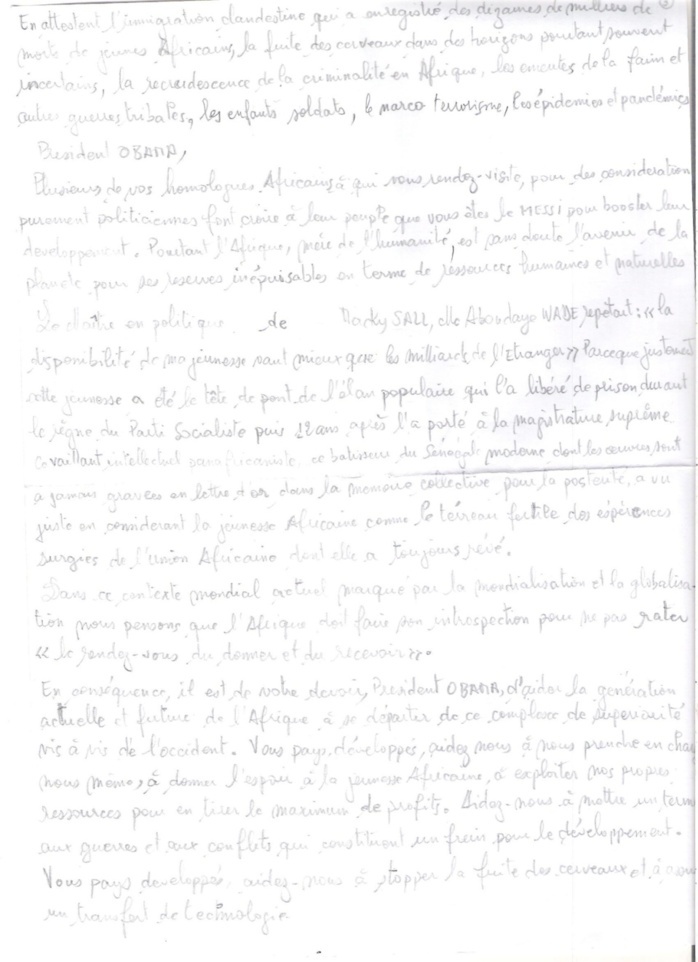 En attestent l'immigration clandestine qui a enregistré des dizaines de milliers de ②
morts de jeunes Africains, la fuite des cerveaux dans des horizons pourtant souvent
incertains, la recrudescence de la criminalité en Afrique, les emeutes de la faim et
autres guerres tribales, les enfants soldats, le narco terrorisme, les épidemies et pandémies
President OBAMA,
Plusieurs de vos homologues Africains à qui vous rendez-visite, pour des consideration
purement politiciennes font croire à leur peuple que vous êtes le MESSI pour booster leur
développement. Pourtant l'Afrique, mère de l'humanité, est sans doute l'avenir de la
planète pour ses reserves inépuisables en terme de ressources humaines et naturelles
Le Maître en politique de Macky SALL, Me Abdoulaye WADE repetait : « la
disponibilité de ma jeunesse vaut mieux que les milliards de l'Etranger » Parceque justement
cette jeunesse a été la tête de pont de l'élan populaire qui l'a libéré de prison durant
le règne du Parti Socialiste puis 12 ans après l'a porté à la magistrature suprême
Ce vaillant intellectuel panafricaniste, ce batisseur du Sénégal moderne dont les oeuvres sont
à jamais gravées en lettre d'or dans la memoire collective pour la posterité, a vu
juste en considerant la jeunesse Africaine comme le terreau fertile des espérences
surgies de l'Union Africaine dont elle a toujours rêvé.
Dans ce contexte mondial actuel marqué par la mondialisation et la globalisa-
tion nous pensons que l'Afrique doit faire son introspection pour ne pas rater
« le rendez-vous du donner et du recevoir ».
En conséquence, il est de votre devoir, President OBAMA, d'aider la génération
actuelle et future de l'Afrique à se départir de ce complexe de superiorité
vis à vis de l'occident. Vous pays développés, aidez nous à nous prendre en char
nous même, à donner l'espoir à la jeunesse Africaine, à exploiter nos propres
ressources pour en tirer le maximum de profits. Aidez-nous à mettre un term
aux guerres et aux conflits qui constituent un frein pour le développement.
Vous pays developpés, aidez-nous à stopper la fuite des cerveaux et à
un transfert de technologie